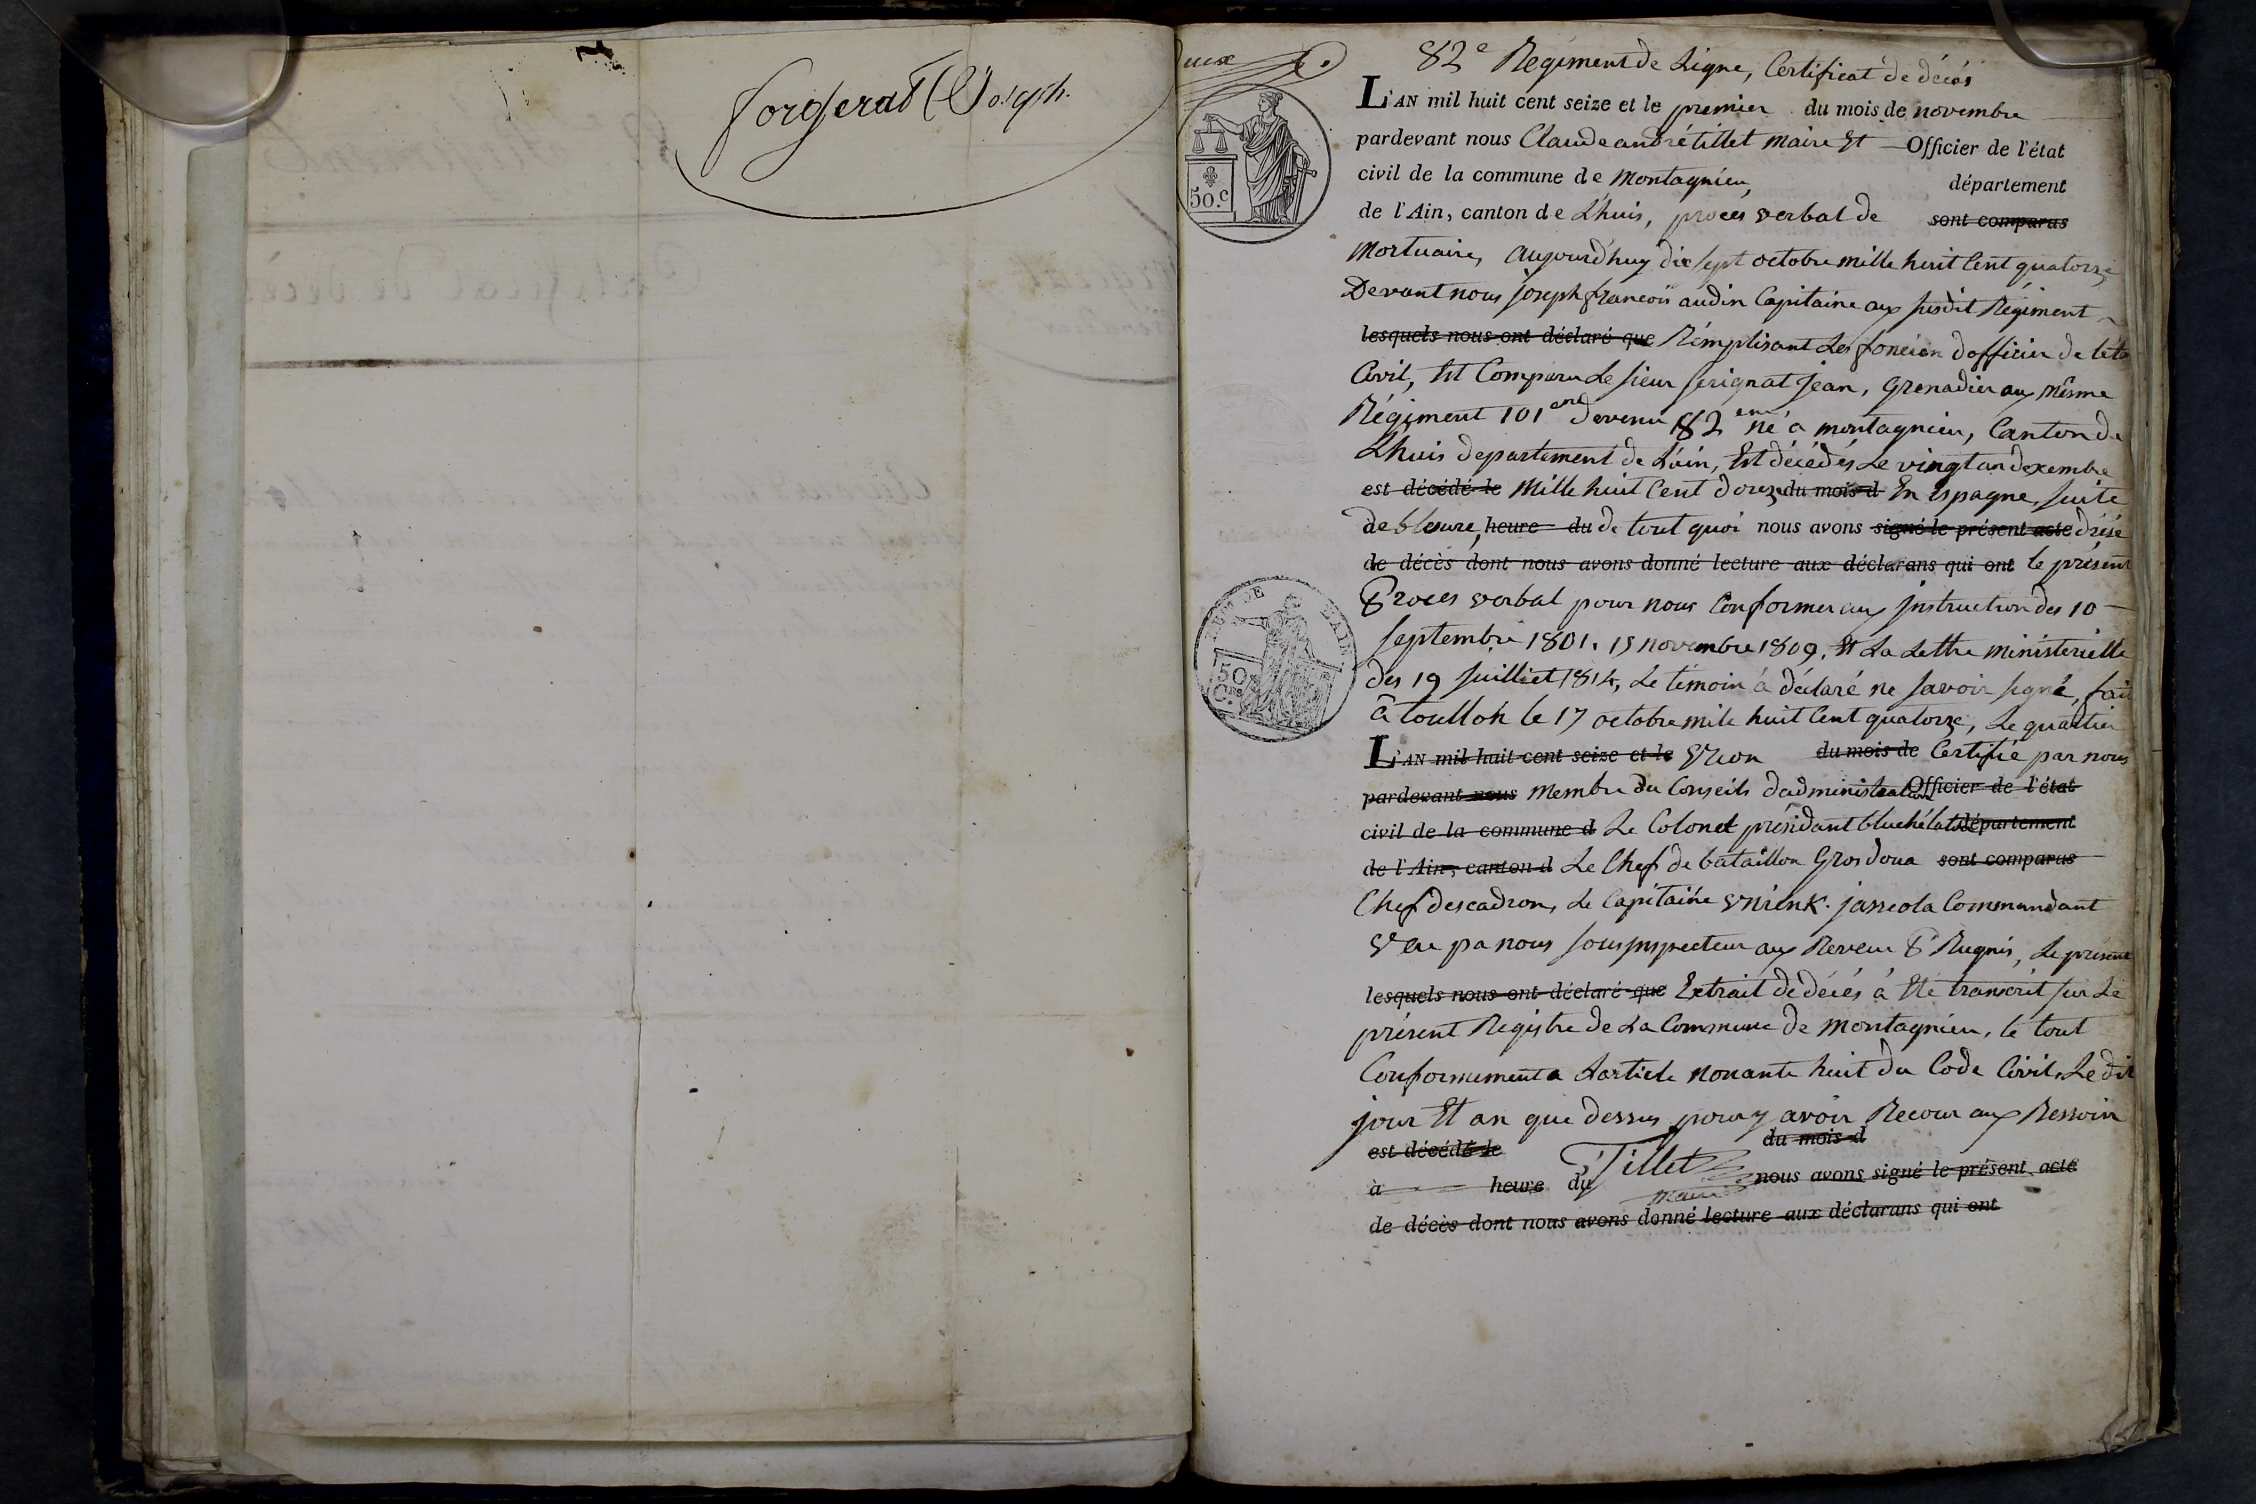 forgerat Joseph.
82e Regiment de Ligne, Certificat de décés
L'AN mil huit cent seize et le premier du mois de novembre
pardevant nous Claude andré tillet maire Et Officier de l'état
civil de la commune de Montagnieu, département
de l'Ain, canton de Lhuis, procès verbal de sont comparus
Mortuaire, aujourd'huy dix sept octobre mille huit Cent quatorze
Devant nous joseph francois audin Capitaine aux susdit Régiment
lesquels nous ont déclaré que Rémplisant Les foncion dofficier de léta
Civil, Est Comparu Le sieur serignat jean, Grenadier aux mêsme
Régiment 101eme devenu 82eme né à montagnieu, Canton de
Lhuis departement de Lain, Est décédés Le vingt un dexembre
est décédé le Mille huit Cent douze du mois d En Espagne, suite
de blesure, heure du de tout quoi nous avons signé le présent acte drésé
de décès dont nous avons donné lecture aux déclarans qui ont le présent
Proces verbal pour nous Conformer aux jnstruction des 10
septembre 1801. 15 novembre 1809. Et La Lettre ministerielle
des 19 juilliet 1814, Le témoin à déclaré ne savoir signé, fait
à toullon le 17 octobre mile huit Cent quatorze, Le quartier
L'AN mil huit cent seize et le du mois de Certifié par nous
pardevant nous Membre du Conseils dadministration Officier de l'état
civil de la commune d Le Colonel présidant département
de l'Ain, canton d Le Chef de bataillon Grosdoua sont comparus
Chef descadron, Le Capitaine Commandant
Veu pa nous sousjnspecteur aux Reveu Le présent
lesquels nous ont déclaré que Extrait de décés à Eté transcrit sur Le
présent Registre de La Commune de Montagnieu, le tout
Conformement a Larticle nonante huit du Code Civil, Le dit
jour Et an que dessus pour y avoir Recour aux Bessoin
est décédé le du mois d
à heure du Tillet nous avons signé le présent acte
maire
de décès dont nous avons donné lecture aux déclarans qui ont
50.c
50
Cес